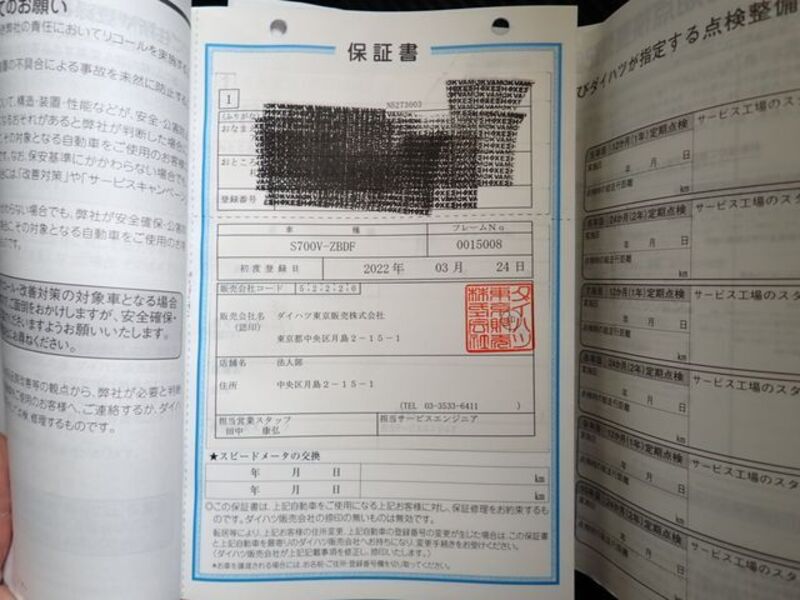 てのお願い
保証書
1
N5273003
(ふりがな)
おなまえ
おところ
登録番号
車種
フレームNo
S700V-ZBDF
0015008
初度登録日
2022年 03月 24日
販売会社コード 52226
販売会社名 ダイハツ東京販売株式会社
(認印)
東京都中央区月島2-15-1
店舗名 法人部
住所 中央区月島2-15-1
(TEL 03-3533-6411 )
担当営業スタッフ
田中 康弘
担当サービスエンジニア
★スピードメータの交換
年 月 日 km
年 月 日 km
◎この保証書は、上記自動車をご使用になる上記お客様に対し、保証修理をお約束するも
のです。ダイハツ販売会社の捺印の無いものは無効です。
転居等により、上記お客様の住所変更、上記自動車の登録番号の変更が生じた場合は、この保証書
と上記自動車を最寄りのダイハツ販売会社へお持ちになり、変更手続きをお受けください。
(ダイハツ販売会社が上記記載事項を修正し、捺印いたします。)
*お車を譲渡される場合には、お名前・ご住所・登録番号欄を切り取ってください。
弊社の責任においてリコールを実施する
の不具合による事故を未然に防止する
構造・装置・性能などが、安全・公害防
るおそれがあると弊社が判断した場合に
その対象となる自動車をご使用のお客様
なお、保安基準にかかわらない場合でも
「改善対策」や「サービスキャンペーン
わらない場合でも、弊社が安全確保・公害
その対象となる自動車をご使用のお客
のです。
コール・改善対策の対象車となる場合
ご面倒をおかけしますが、安全確保・
ますようお願いいたします。
ねください。
改善等の観点から、弊社が必要と判断
ご使用のお客様へ、ご連絡するか、ダイハ
点検、修理するものです。
びダイハツが指定する点検整備
12か月(1年)定期点検 サービス工場のスタ
実施日 年 月 日
点検時の総走行距離 km
24か月(2年)定期点検 サービス工場のスタ
実施日 年 月 日
点検時の総走行距離 km
12か月(1年)定期点検 サービス工場のスタ
実施日 年 月 日
点検時の総走行距離 km
24か月(2年)定期点検 サービス工場のスタ
実施日 年 月 日
点検時の総走行距離 km
12か月(1年)定期点検 サービス工場のスタ
実施日 年 月 日
点検時の総走行距離 km
24か月(2年)定期点検 サービス工場のスタ
実施日 年 月 日
点検時の総走行距離 km